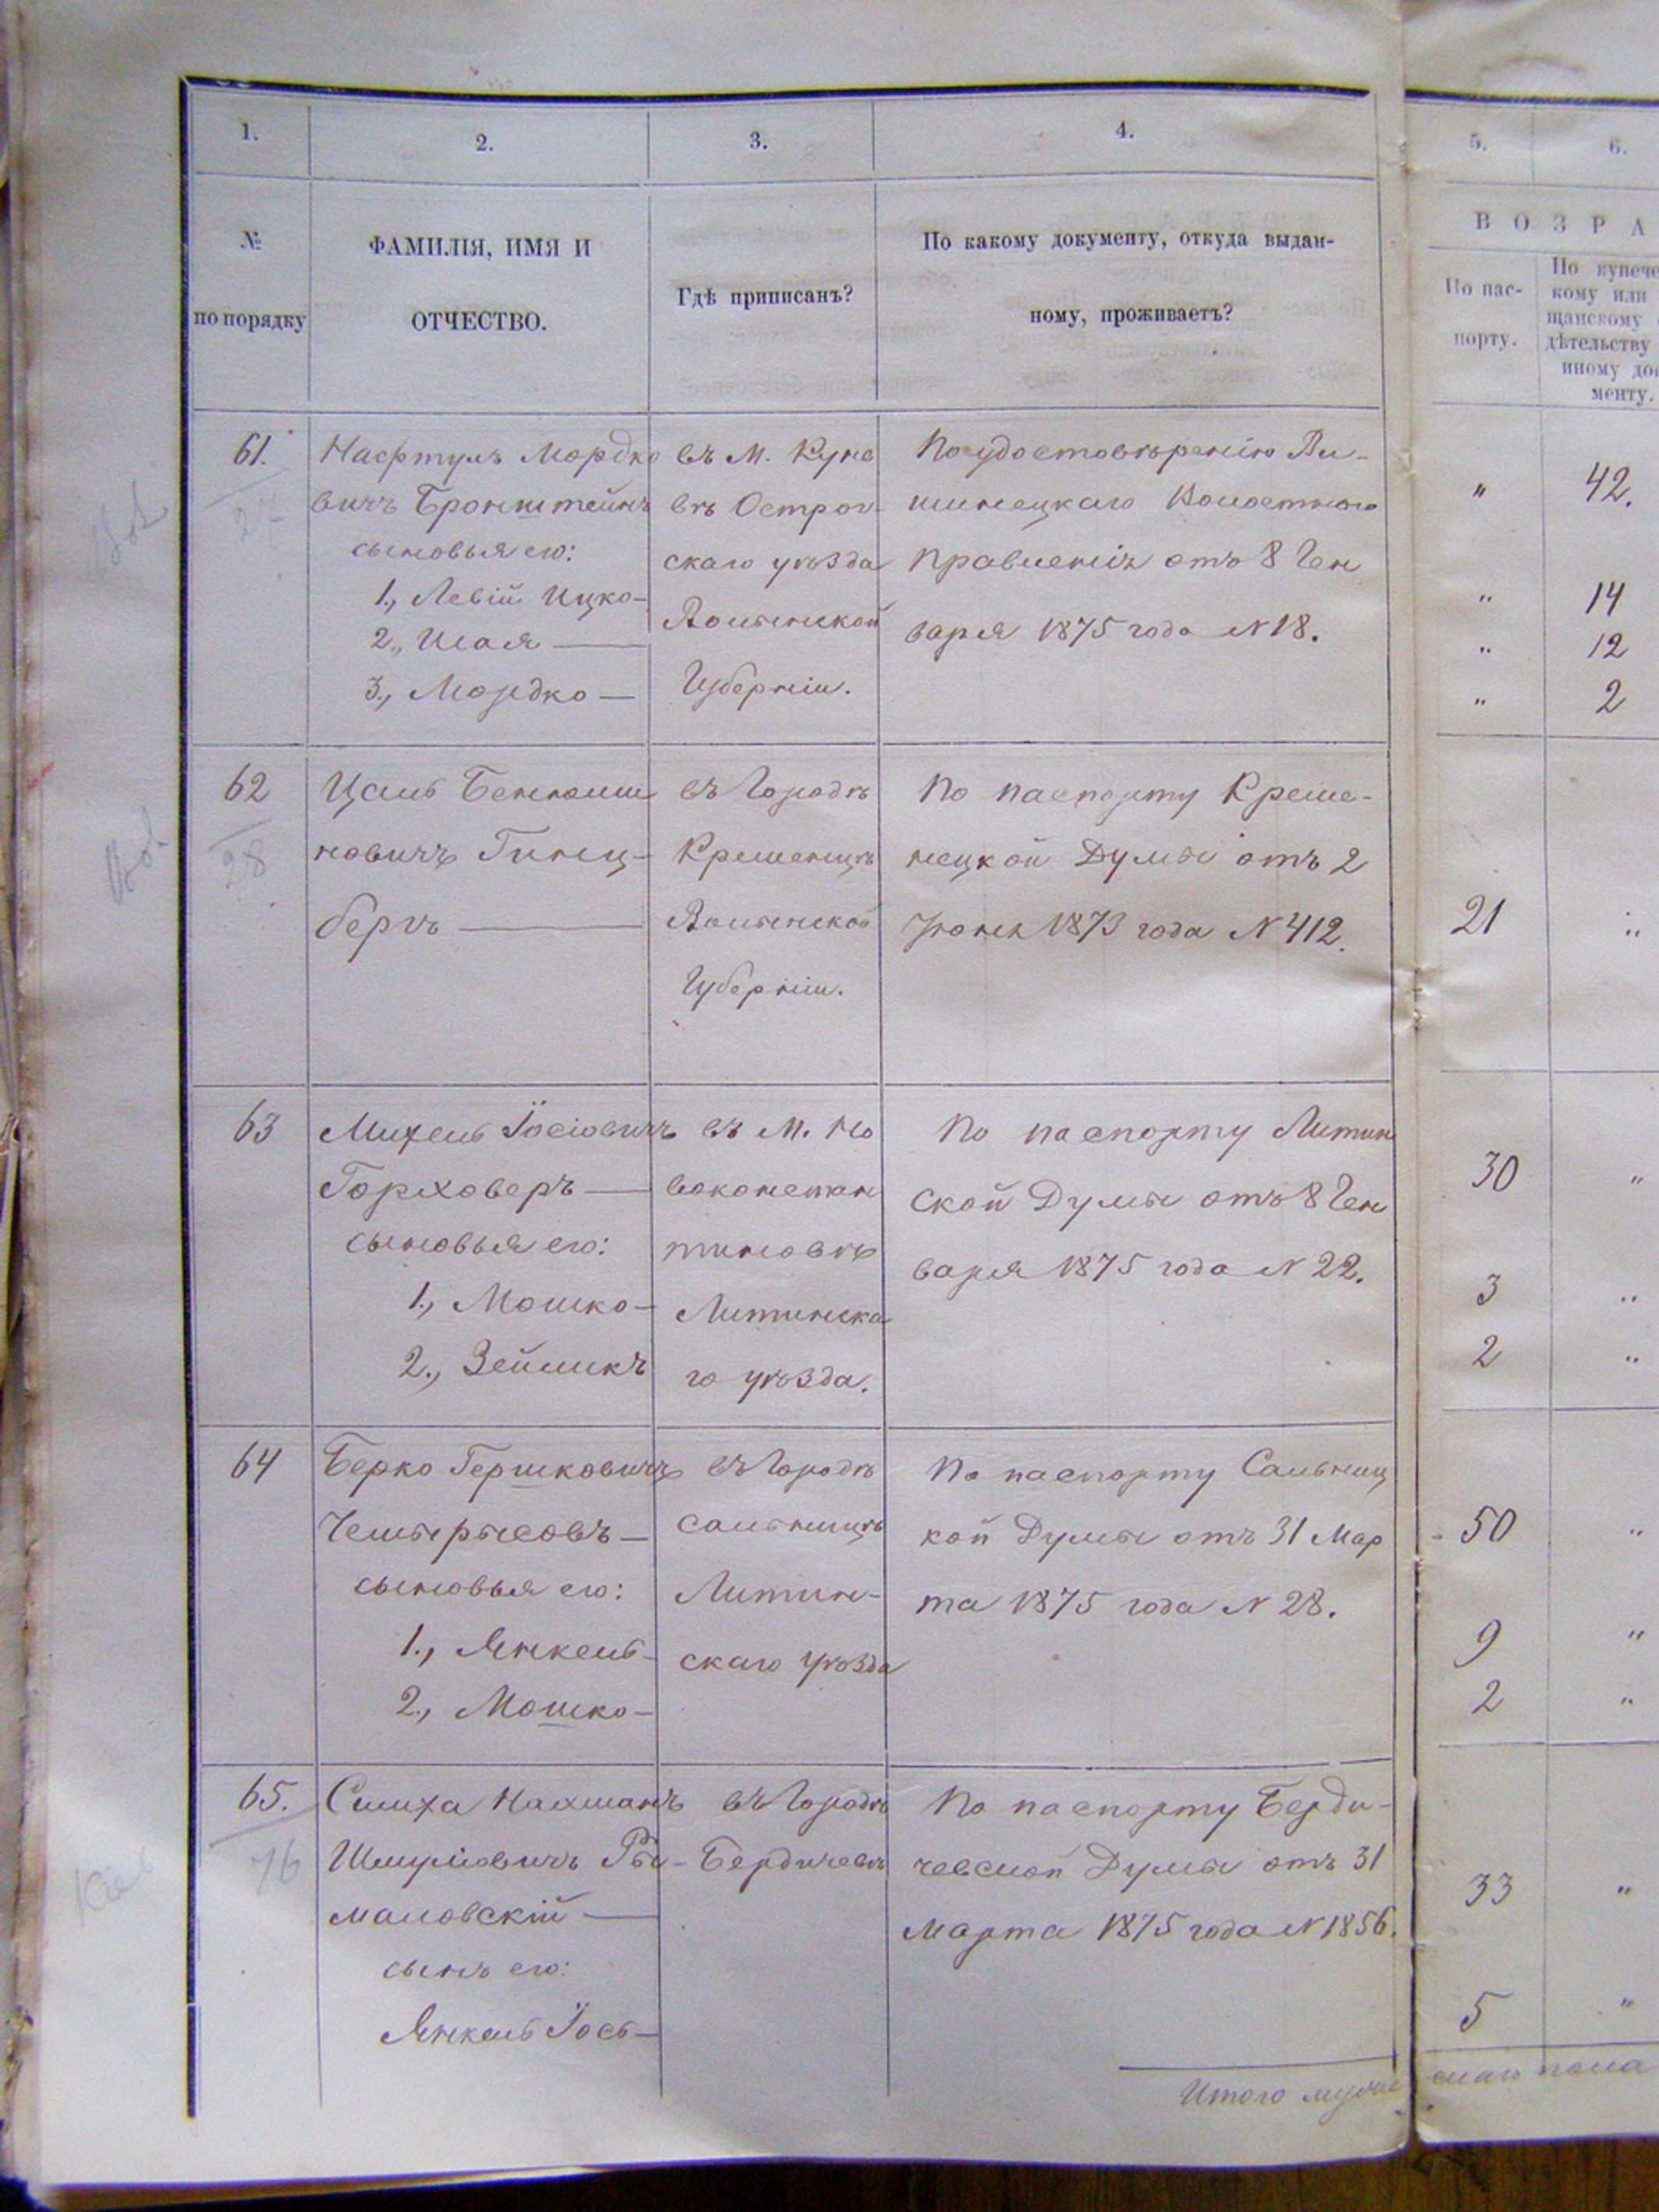 1.
2.
3.
4.
5.
6.
№
по порядку
ФАМИЛІЯ, ИМЯ И
ОТЧЕСТВО.
Гдѣ приписанъ?
По какому документу, откуда выдан-
ному, проживаетъ?
ВОЗРА
По пас-
порту.
По купече
кому или
щанскому
дѣтельству
иному до
менту.
61.
27
Нафтулъ Мордко
вичъ Бронштейнъ
сыновья его:
1., Левій Ицко-
2., Шая —
3., Мордко —
въ М. Куне
вѣ Острог-
скаго уѣзда
Волынской
Губерніи.
По удостовѣренію
Волостного
Правленія отъ 8 Ген
варя 1875 года N 18.
" 42.
" 14
" 12
" 2
62
28
Цаль Беннюми
новичъ Гинц-
бергъ —
въ Городѣ
Кременцѣ
Волынской
Губерніи.
По паспорту Креме-
нецкой Думы отъ 2
Іюня 1873 года N 412.
21 "
63
Михель Іосіовичъ
Горховеръ —
сыновья его:
1., Мошко-
2., Зейликъ
въ М. Но
воконстан
тиновѣ
Литинска
го уѣзда.
По паспорту Литин
ской Думы отъ 8 Ген
варя 1875 года N 22.
30 "
3 "
2 "
64
Берко Гершковичъ
сыновья его:
1., Янкель-
2., Мошко-
въ Городѣ
Сальницѣ
Литин-
скаго уѣзда
По паспорту Сальниц
кой Думы отъ 31 Мар
та 1875 года N 28.
50 "
9 "
2 "
65.
76
Симха Нахманъ
Шмуліовичъ Ры-
маловскій —
сынъ его:
Янкель Іось —
въ Городѣ
Бердичевѣ
По паспорту Берди-
чевской Думы отъ 31
Марта 1875 года N 1856.
33 "
5 "
Итого муже скаго пола